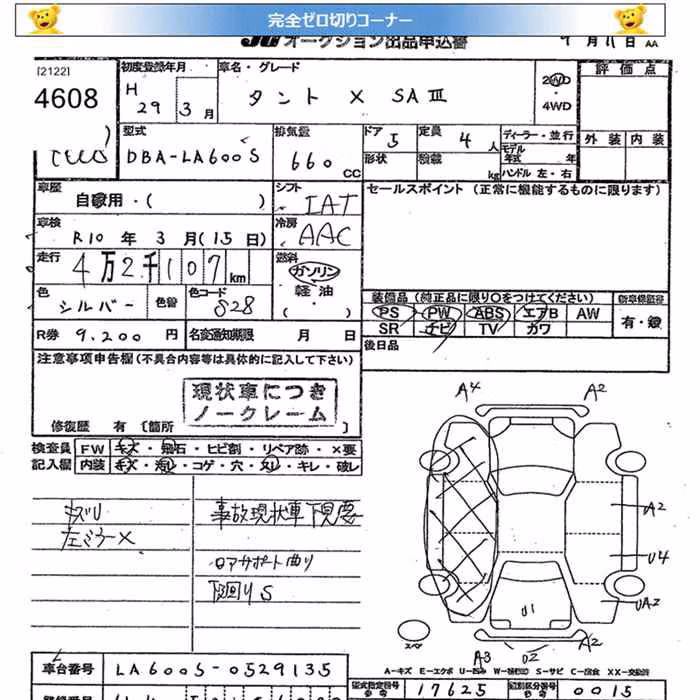 完全ゼロ切りコーナー
JU オークション出品申込書 9月11日 AA
[2122]
4608
初度登録年月 車名・グレード 2WD 評価点
H 29 3月 タント X SAⅢ ・4WD
外装 内装
型式 排気量 ドア 5 定員 4人 ディーラー・並行
DBA-LA600S 660CC 形状 積載 kg モデル年式 年
ハンドル 左・右
車歴 シフト セールスポイント (正常に機能するものに限ります)
自家用・( ) IAT
車検 冷房
R10年3月(15日) AAC
走行 燃料
4万2千107km ガソリン
軽油
色 シルバー 色替 色コード S28 ・( )
装備品 (純正品に限り○をつけてください) 新車保証書
PS PW ABS エアB AW 有・録
SR ナビ TV カワ
R券 9,200円 名変通知期限 月 日 後日品
注意事項申告欄(不具合内容等は具体的に記入して下さい)
現状車につき
ノークレーム
修復歴 有 [箇所 ]
検査員 FW キズ・飛石・ヒビ割・リペア跡・×要
記入欄 内装 キズ・汚レ・コゲ・穴・スレ・キレ・破レ
キズU 事故現状車下見要
左ミラーX
コアサポート曲り
下回りS
A4 A2
A2
U4
UA2
U1
スペア A3 U2 A2
A-キズ E-エクボ U-凹み S-サビ C-腐食 XX-交換済
車台番号 LA600S-0529135
型式指定番号 参考 17625 類別区分番号 参考 0015